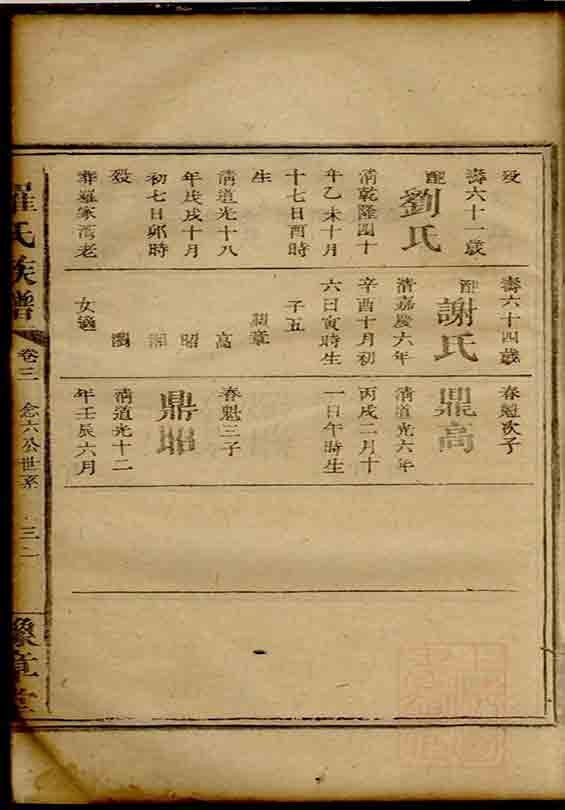 歿
壽六十一歲
配
劉氏
清乾隆四十
年乙未十月
十七日酉時
生
清道光十八
年戊戌十月
初七日卯時
歿
葬羅家灣老
壽六十四歲
配
謝氏
清嘉慶六年
辛酉十月初
六日寅時生
子五
高
昭
女適
春魁次子
鼎高
清道光六年
丙戌二月十
一日午時生
春魁三子
鼎昭
清道光十二
年壬辰六月
羅氏族譜
卷三
念六公世系
三一
豫章堂